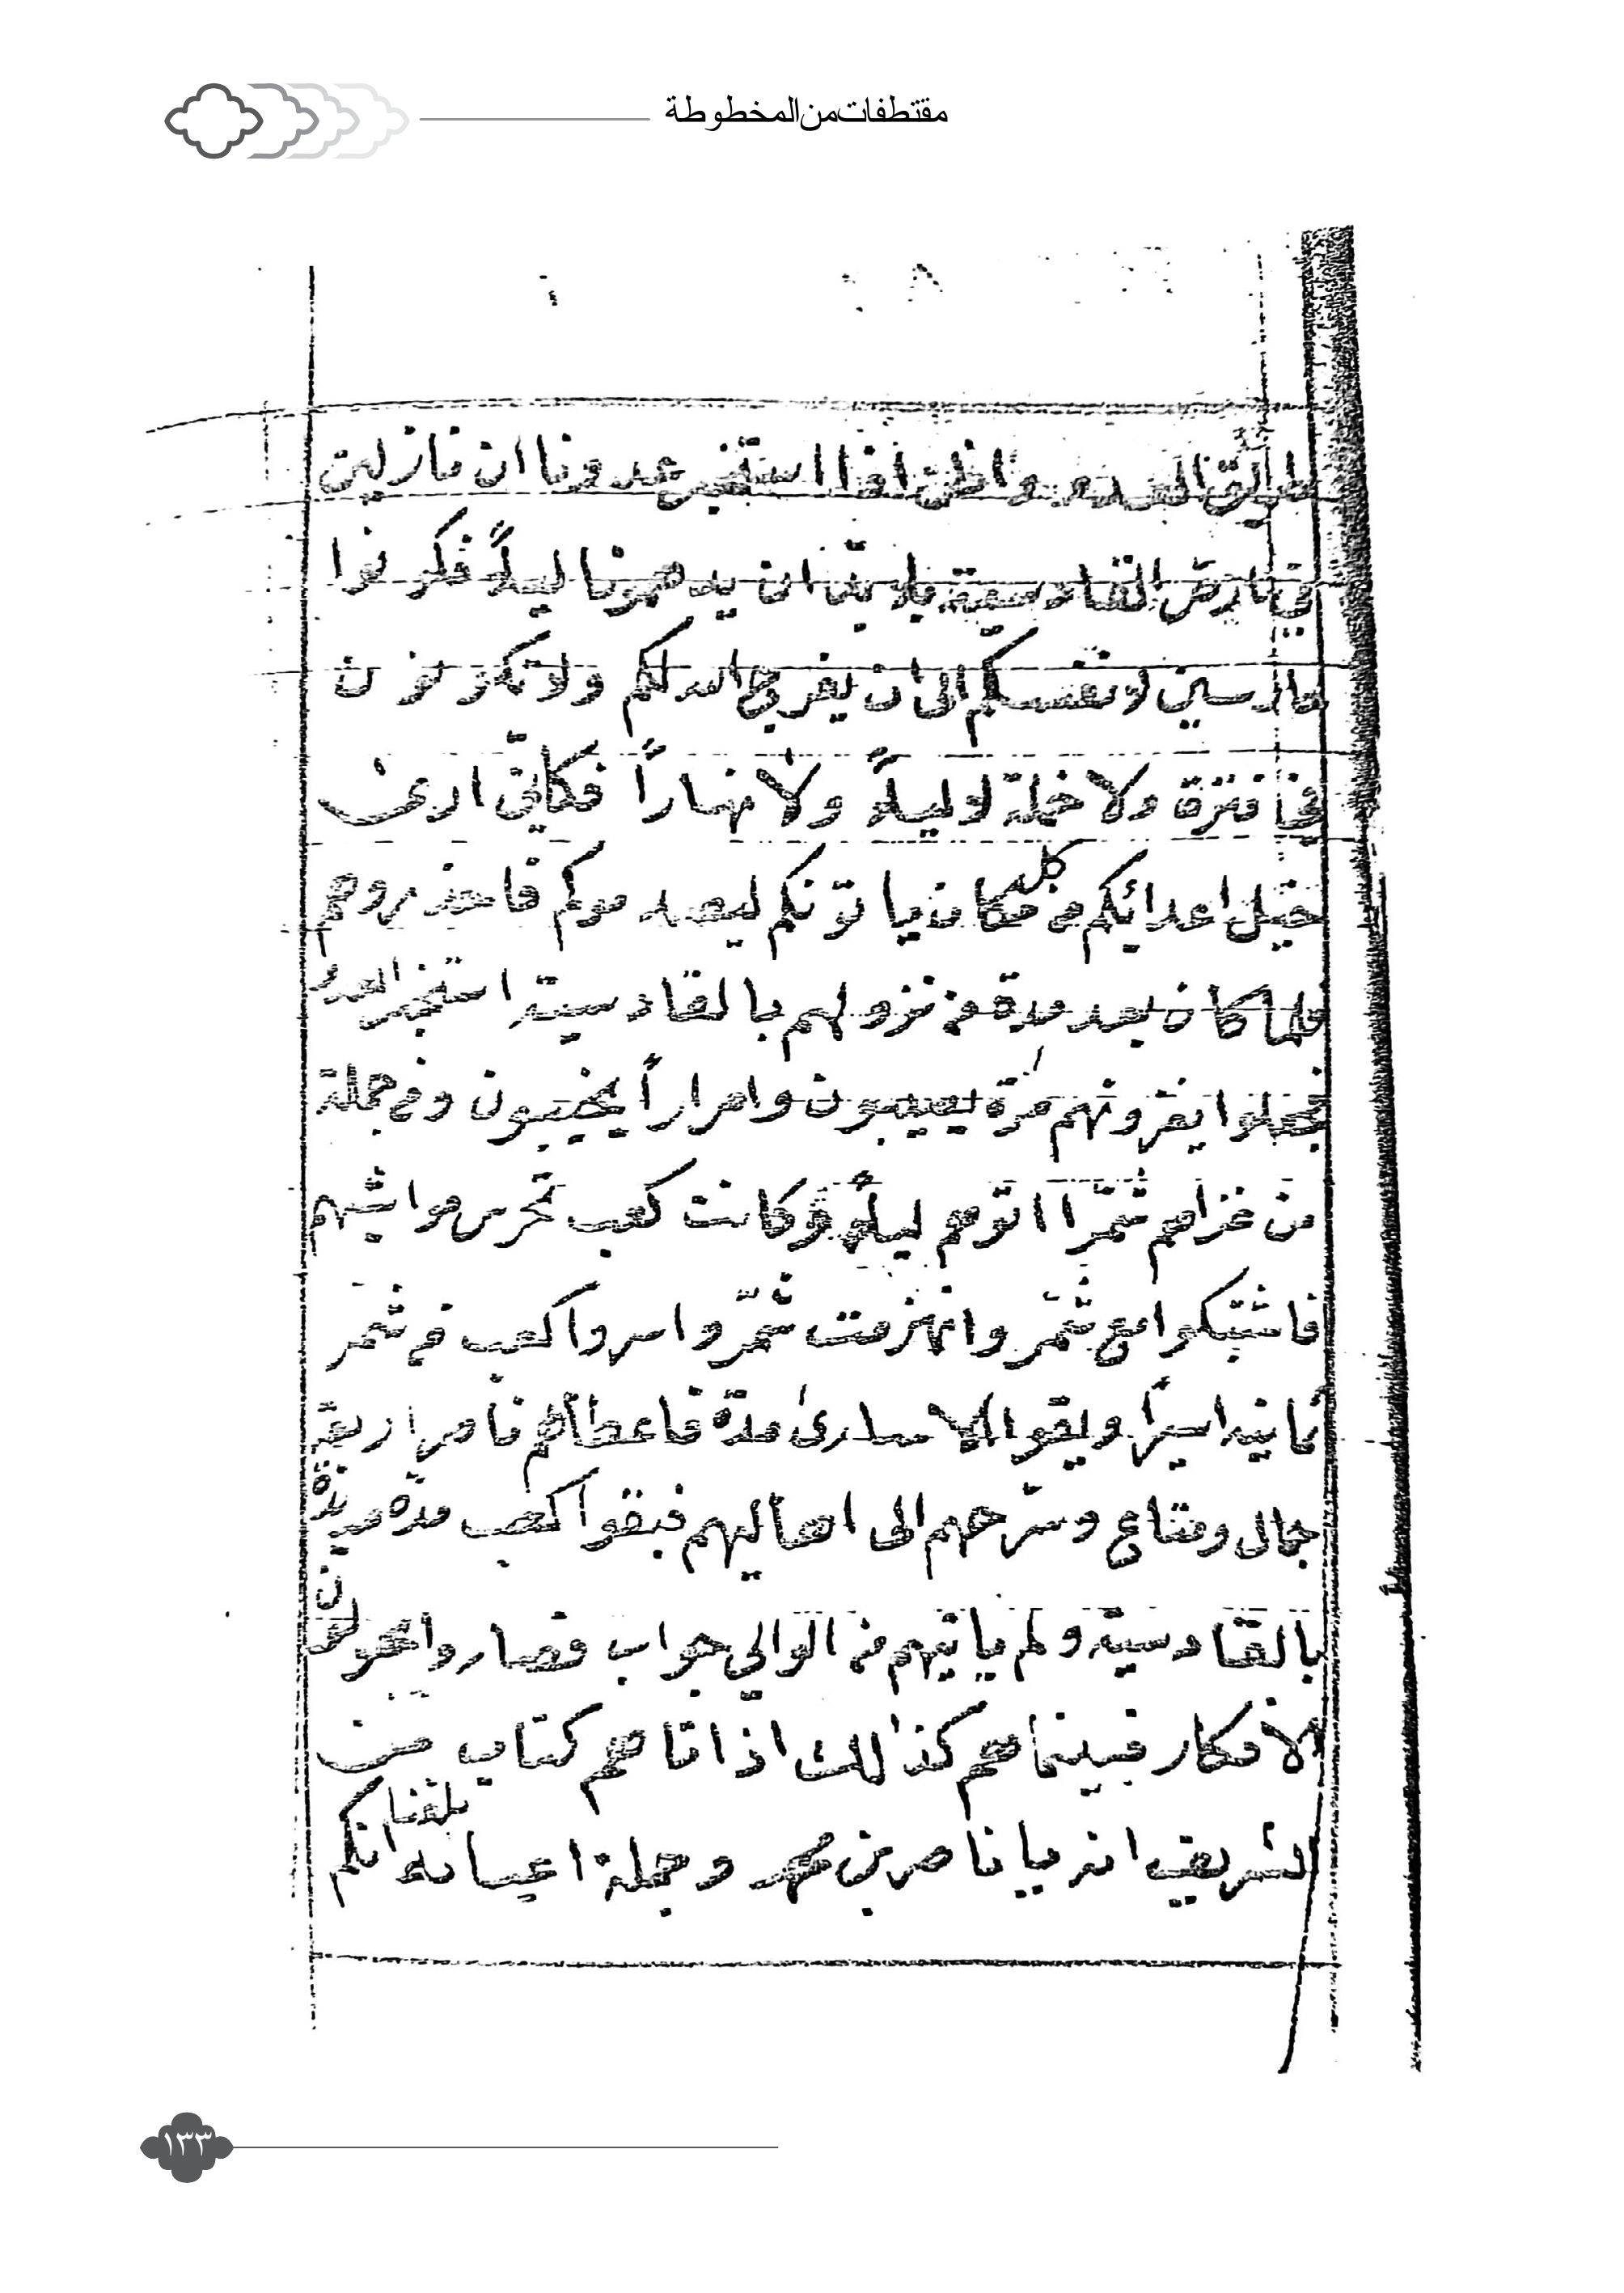 مقتطفات من المخطوطة
واظن اذا استخبر عدونا ان نازلين
في ارض القادسية بلا بدّ ان يدهمونا ليلاً فكونوا
حارسين لانفسكم الى ان يفرج الله لكم ولا تكونون
في فترة ولا خملة لا ليلاً ولا نهاراً فكانّي ارى
خيل اعدائكم من كل مكان ياتونكم ليصدموكم فاحذروهم
فلما كان بعد مدة من نزولهم بالقادسية استخبر العدو
فجعلوا يغزونهم مرة يصيبون وامراراً يخيبون ومن جملة
من غزاهم شمّر اتوهم ليلاً وكانت كعب تحرس مواشيهم
فاشتبكوا مع شمّر وانهزمت شمّر واسروا كعب من شمر
ثمانية اسيراً وبقوا الاسارى مدّة فاعطاهم ناصر اربعة
جمال ومتاع وسرّحهم الى اهاليهم فبقوا كعب مدة مديدة
بالقادسية ولم ياتيهم من الوالي جواب فصاروا يجولون
الافكار فبينما هم كذلك اذ اتاهم كتاب من
الشريف انه يا ناصر بن محمد وجملة اعيانه بلغنا انكم
١٣٣